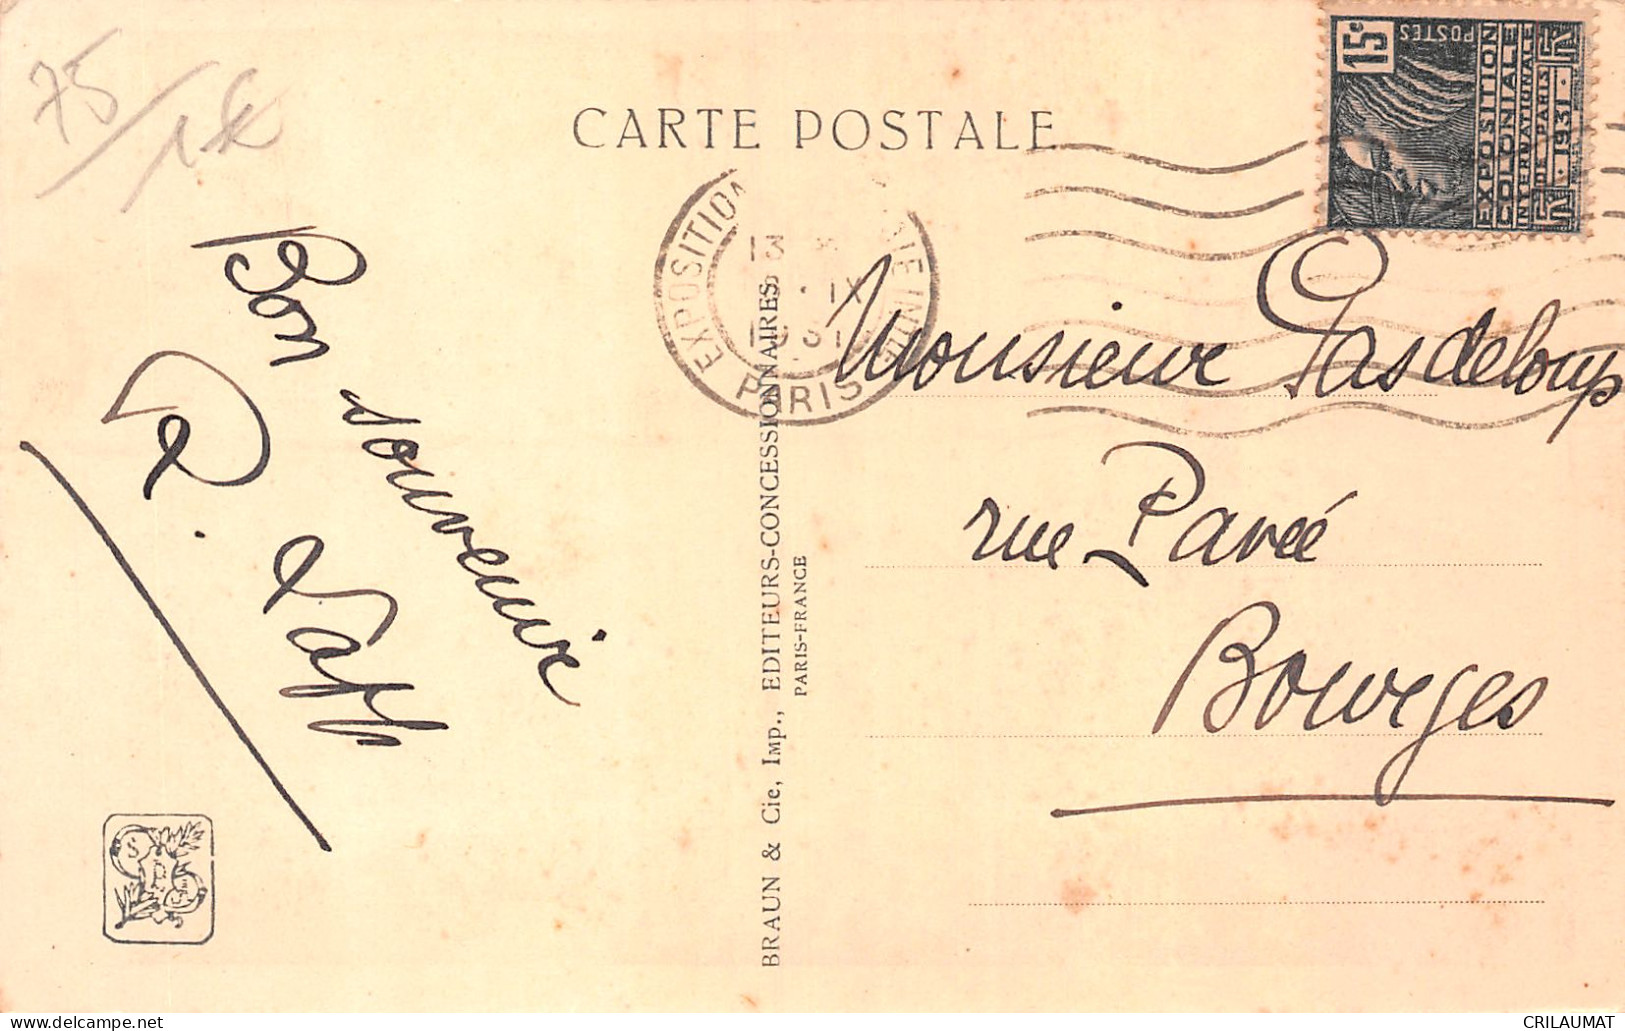 75/1€
CARTE POSTALE
15c
POSTES
EXPOSITION
COLONIALE
INTERNATIONALE
DE PARIS
1931
EXPOSITION
PARIS
13
IX
1931
Bon souvenir
R.
Monsieur Pasdeloup
rue Pavée
Bourges
BRAUN & Cie, Imp., EDITEURS-CONCESSIONNAIRES
PARIS-FRANCE
CRILAUMAT